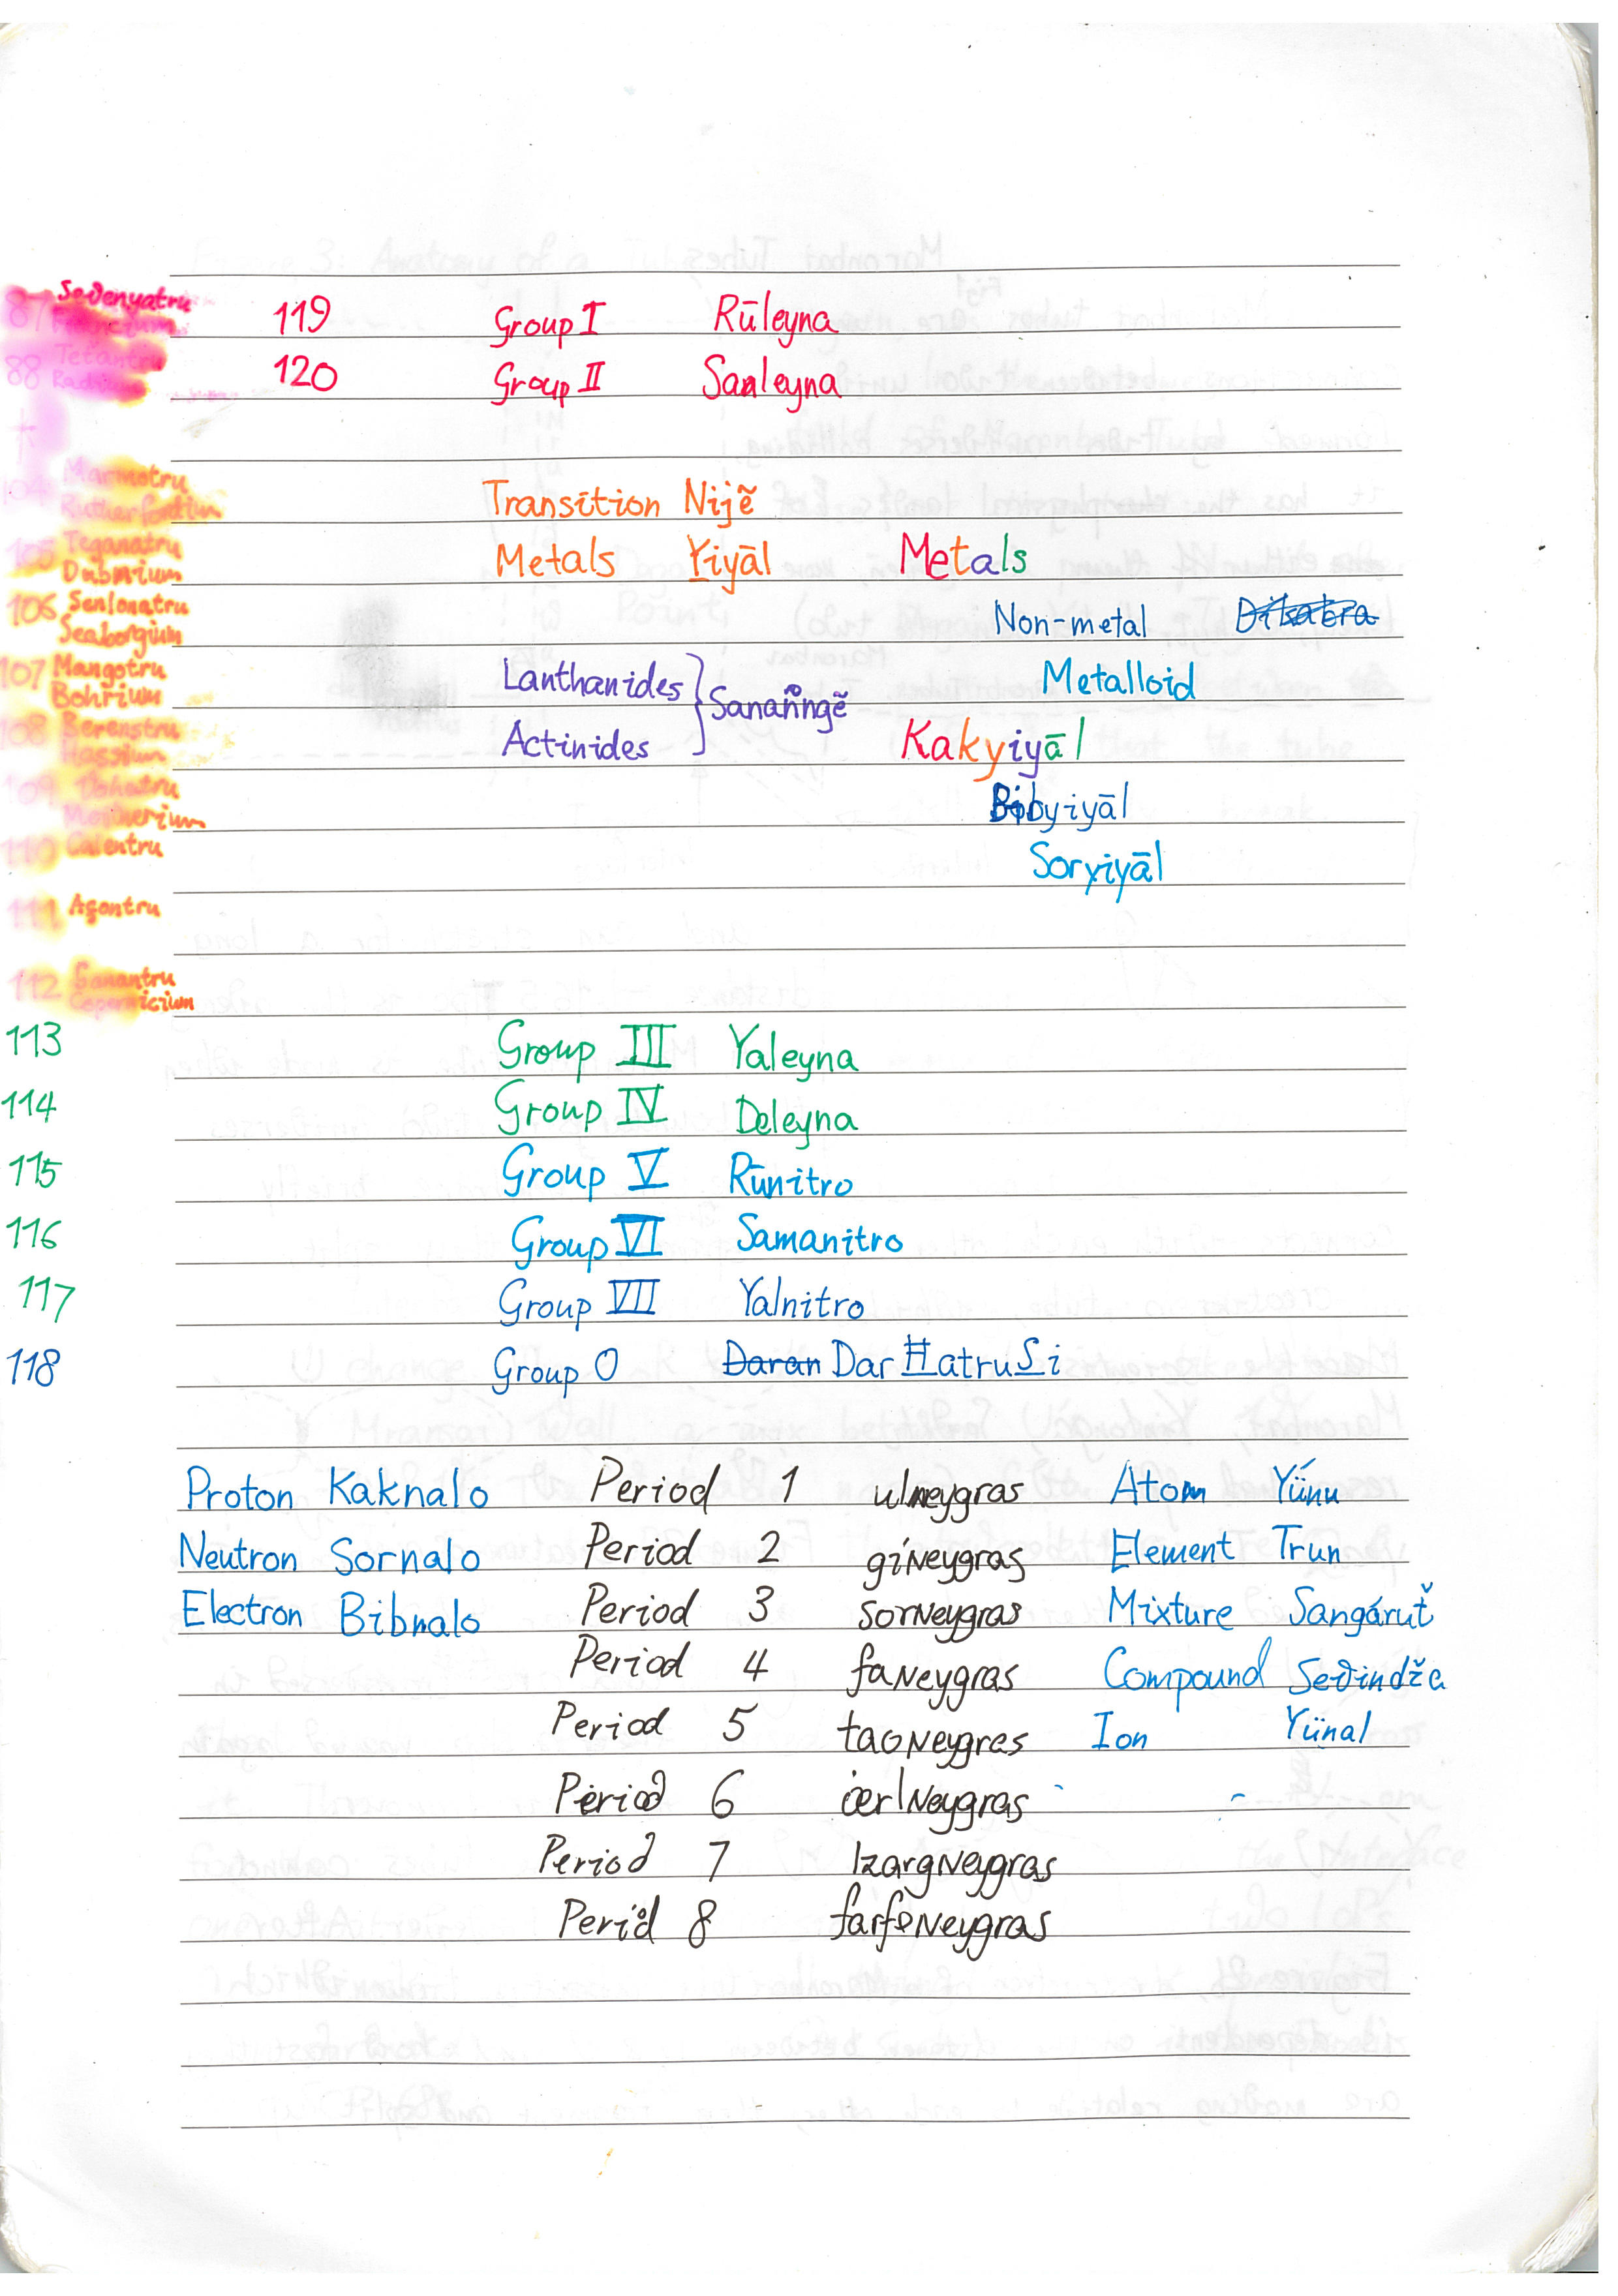 87 Seđenyatru
Francium
119 Group I Rūleyna
88 Teťantru
Radium
120 Group II Sanleyna
104 Marmotru
Rutherfordium
Transition Nijẽ
105 Teganatru
Dubnium
Metals Yiyāl Metals
106 Senlonatru
Seaborgium
Non-metal
107 Mangotru
Bohrium
Lanthanides Metalloid
Sananngẽ
108 Berenstru
Hassium
Actinides Kakyiyāl
109
Meitnerium
Bibyiyāl
110 Calentru
Soryiyāl
111 Agontru
112 Ganantru
Copernicium
113 Group III Yaleyna
114 Group IV Deleyna
115 Group V Rūnitro
116 Group VI Samanitro
117 Group VII Yalnitro
118 Group 0 Daran Dar HatruSi
Proton Kaknalo Period 1 ulneygras Atom Yünu
Neutron Sornalo Period 2 gíNeygras Element Trun
Electron Bibnalo Period 3 sorNeygras Mixture Sangáruť
Period 4 faNeygras Compound Seđindža
Period 5 taoNeygras Ion Yünal
Period 6
Period 7 kargNeygras
Periőd 8 farfeNeygras